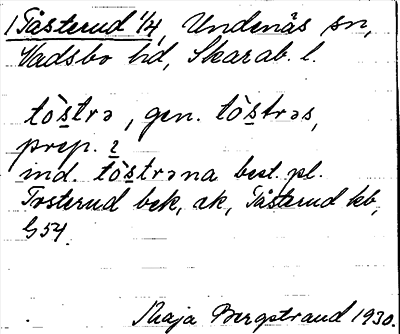 1 Tåsterud 1/4, Undenäs sn,
Vadsbo hd, Skarab. l.
tòstrə, gen. tòstrəs,
prep. i
ind. tòstrəna best. pl.
Tosterud bek, ek, Tåsterud kb,
G54.
Maja Bergstrand 1930.